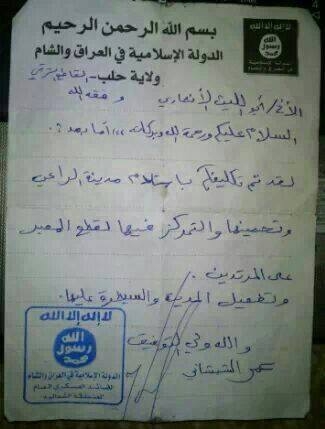 بسم الله الرحمن الرحيم
الدولة الإسلامية في العراق والشام
ولاية حلب - القاطع الشرقي
لا إله إلا الله
الله
رسول
محمد
الأخ / أبو الليث الأنصاري وفقه الله
السلام عليكم ورحمة الله وبركاته ،، أما بعد :
لقد تم تكليفكم باستلام مدينة الراعي
وتحصينها والتمركز فيها لقطع المعبر
على المرتدين .
ولتطهير المدينة والسيطرة عليها .
والله ولي التوفيق
عمر الشيشاني
لا إله إلا الله
الله
رسول
محمد
الدولة الإسلامية في العراق والشام
القائد العسكري العام
للمنطقة الشمالية